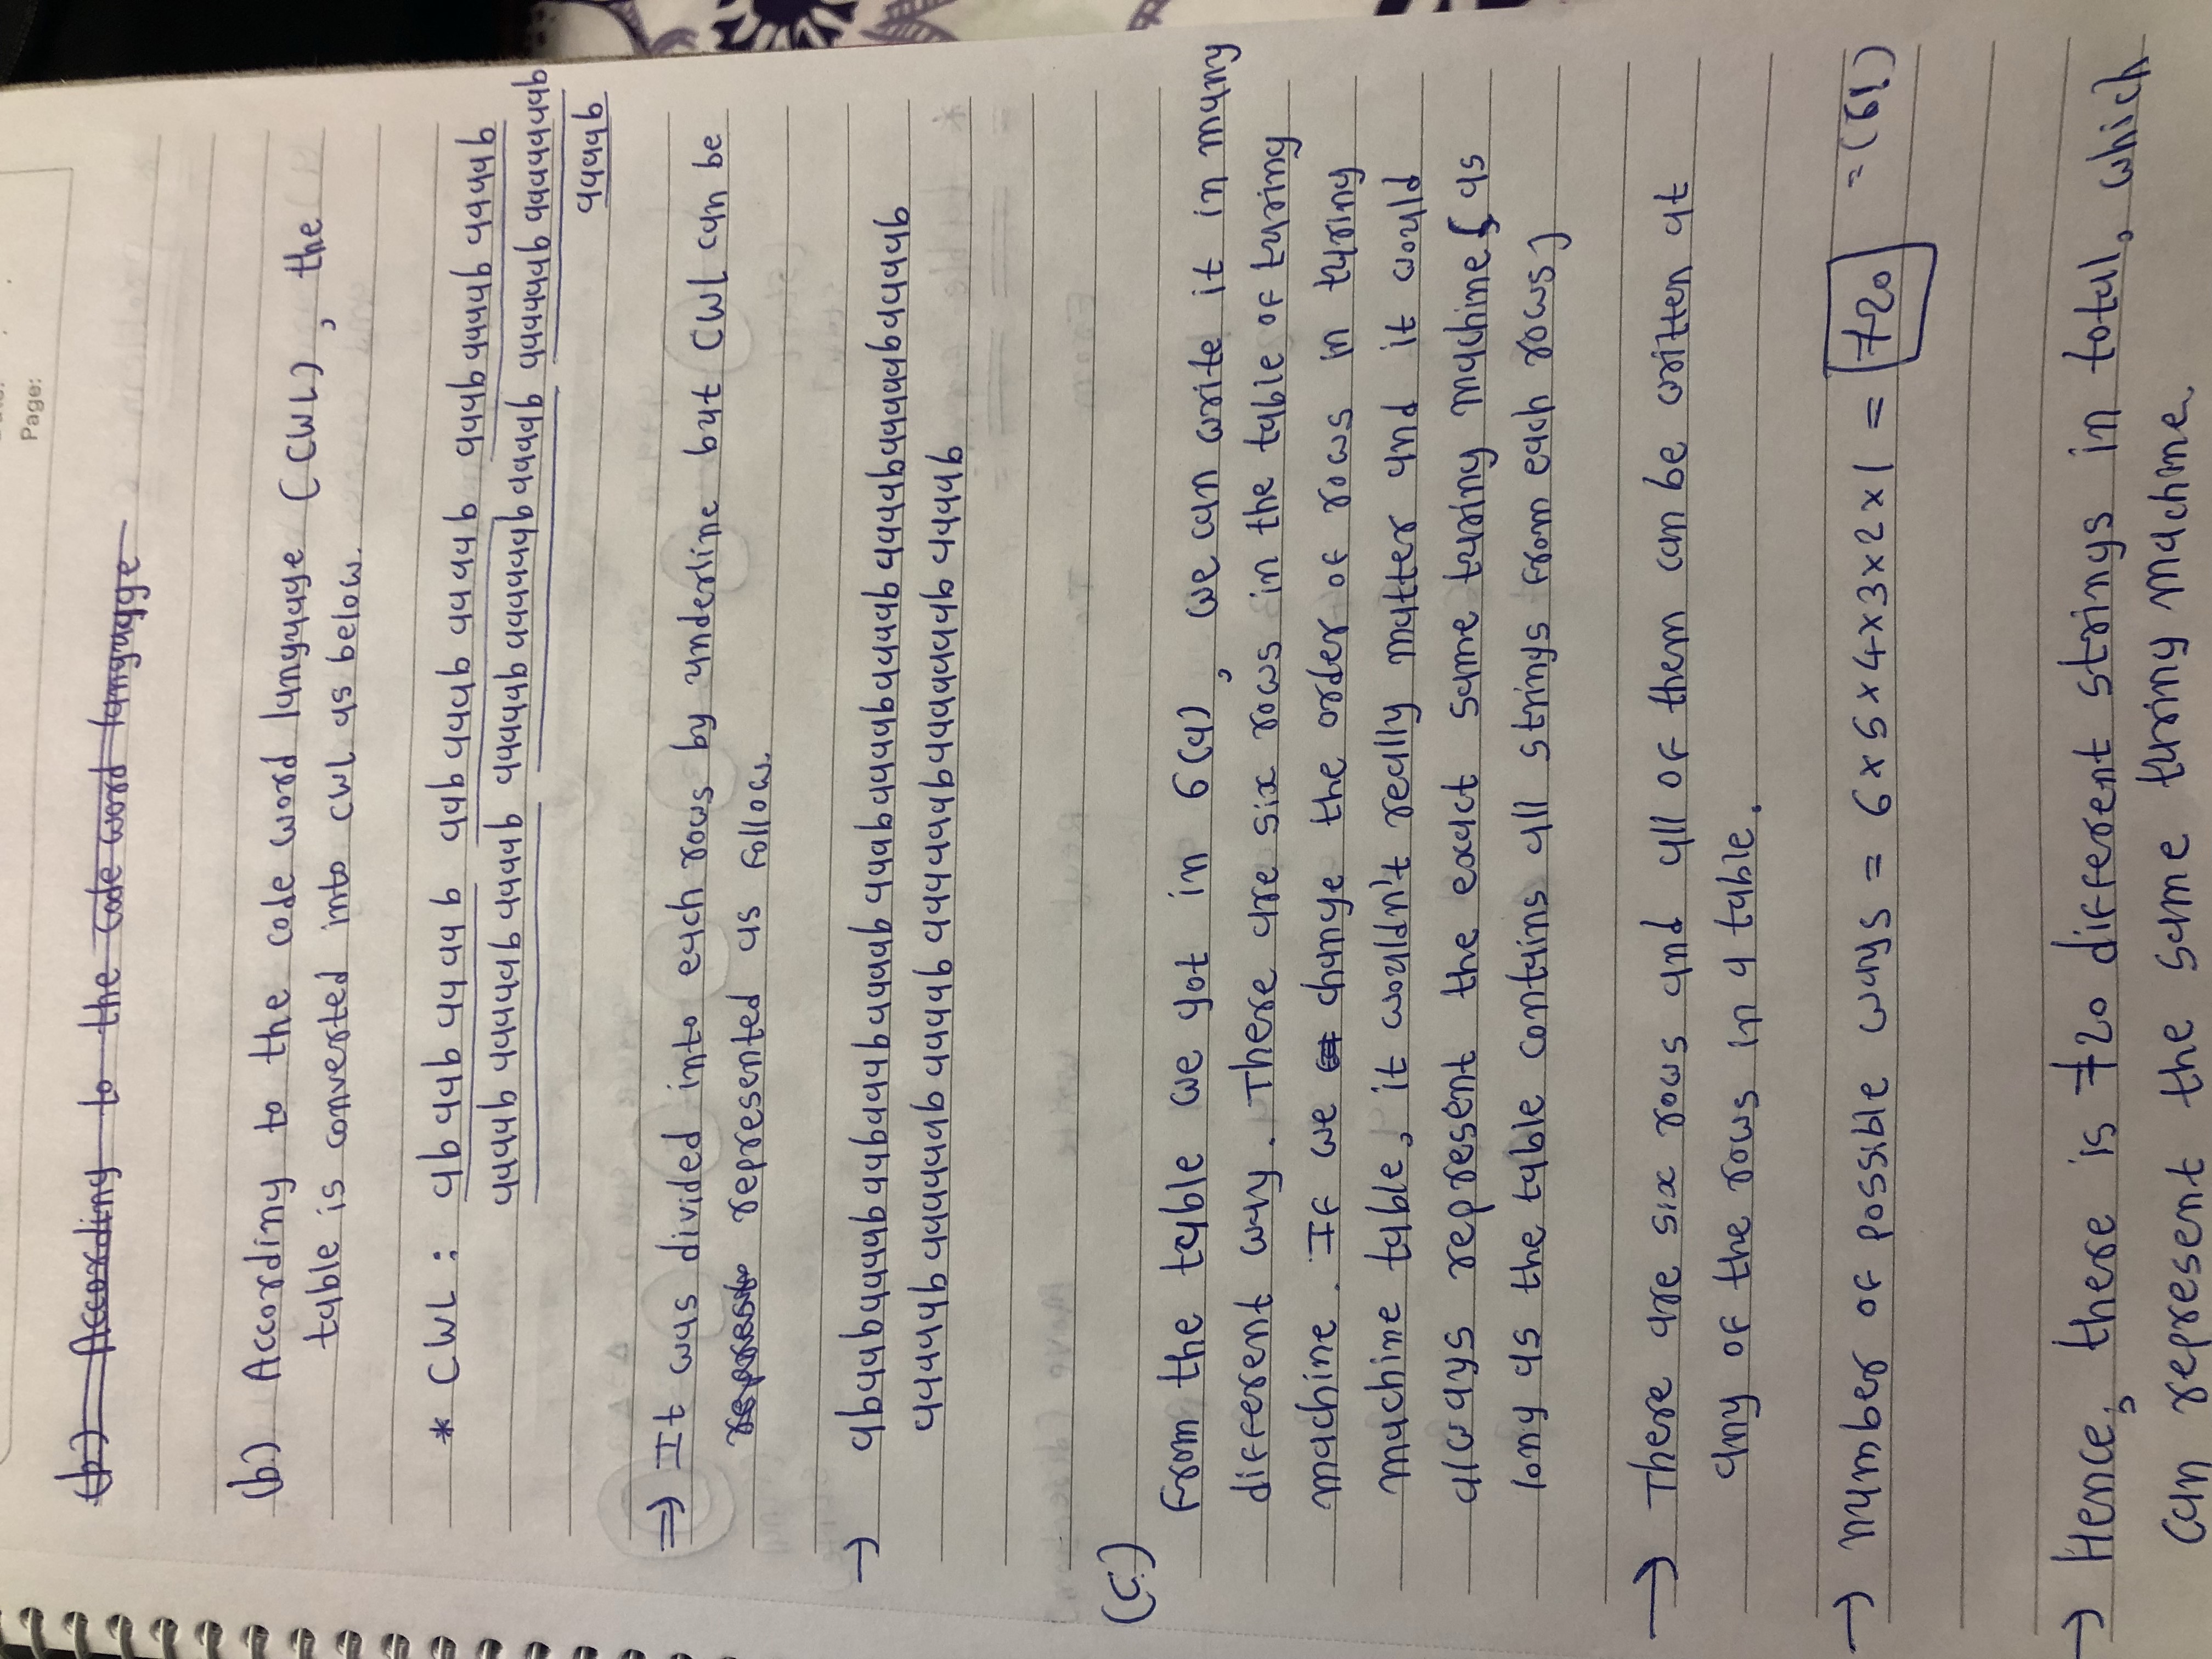 Page:
(b) According to the code word language
(b) According to the code word language (CWL), the
table is converted into CWL as below.
* CWL : ab aab aaaab aab aaab aaaab aaab aaaab aaaab
aaaab aaaaab aaaab aaaaab aaaaaab aaaab aaaaaab aaaaaaab
aaaab
⇒ It was divided into each rows by underline but CWL can be
represented as follow.
→ abaabaaaab aabaaabaaaab aaabaaaabaaaab aaaabaaaaabaaaab
aaaaab aaaaaab aaaab aaaaaabaaaaaaab aaaab
(c)
From the table we got in 6(a), we can write it in many
different way. There are six rows in the table of turing
machine. If we change the order of rows in turing
machine table, it wouldn't really matter and it would
always represent the exact same turing machine ( as
long as the table contains all strings from each rows)
→ There are six rows and all of them can be written at
any of the rows in a table.
→ number of possible ways = 6×5×4×3×2×1 = 720 = (6!)
→ Hence, there is 720 different strings in total, which
can represent the same turing machine.